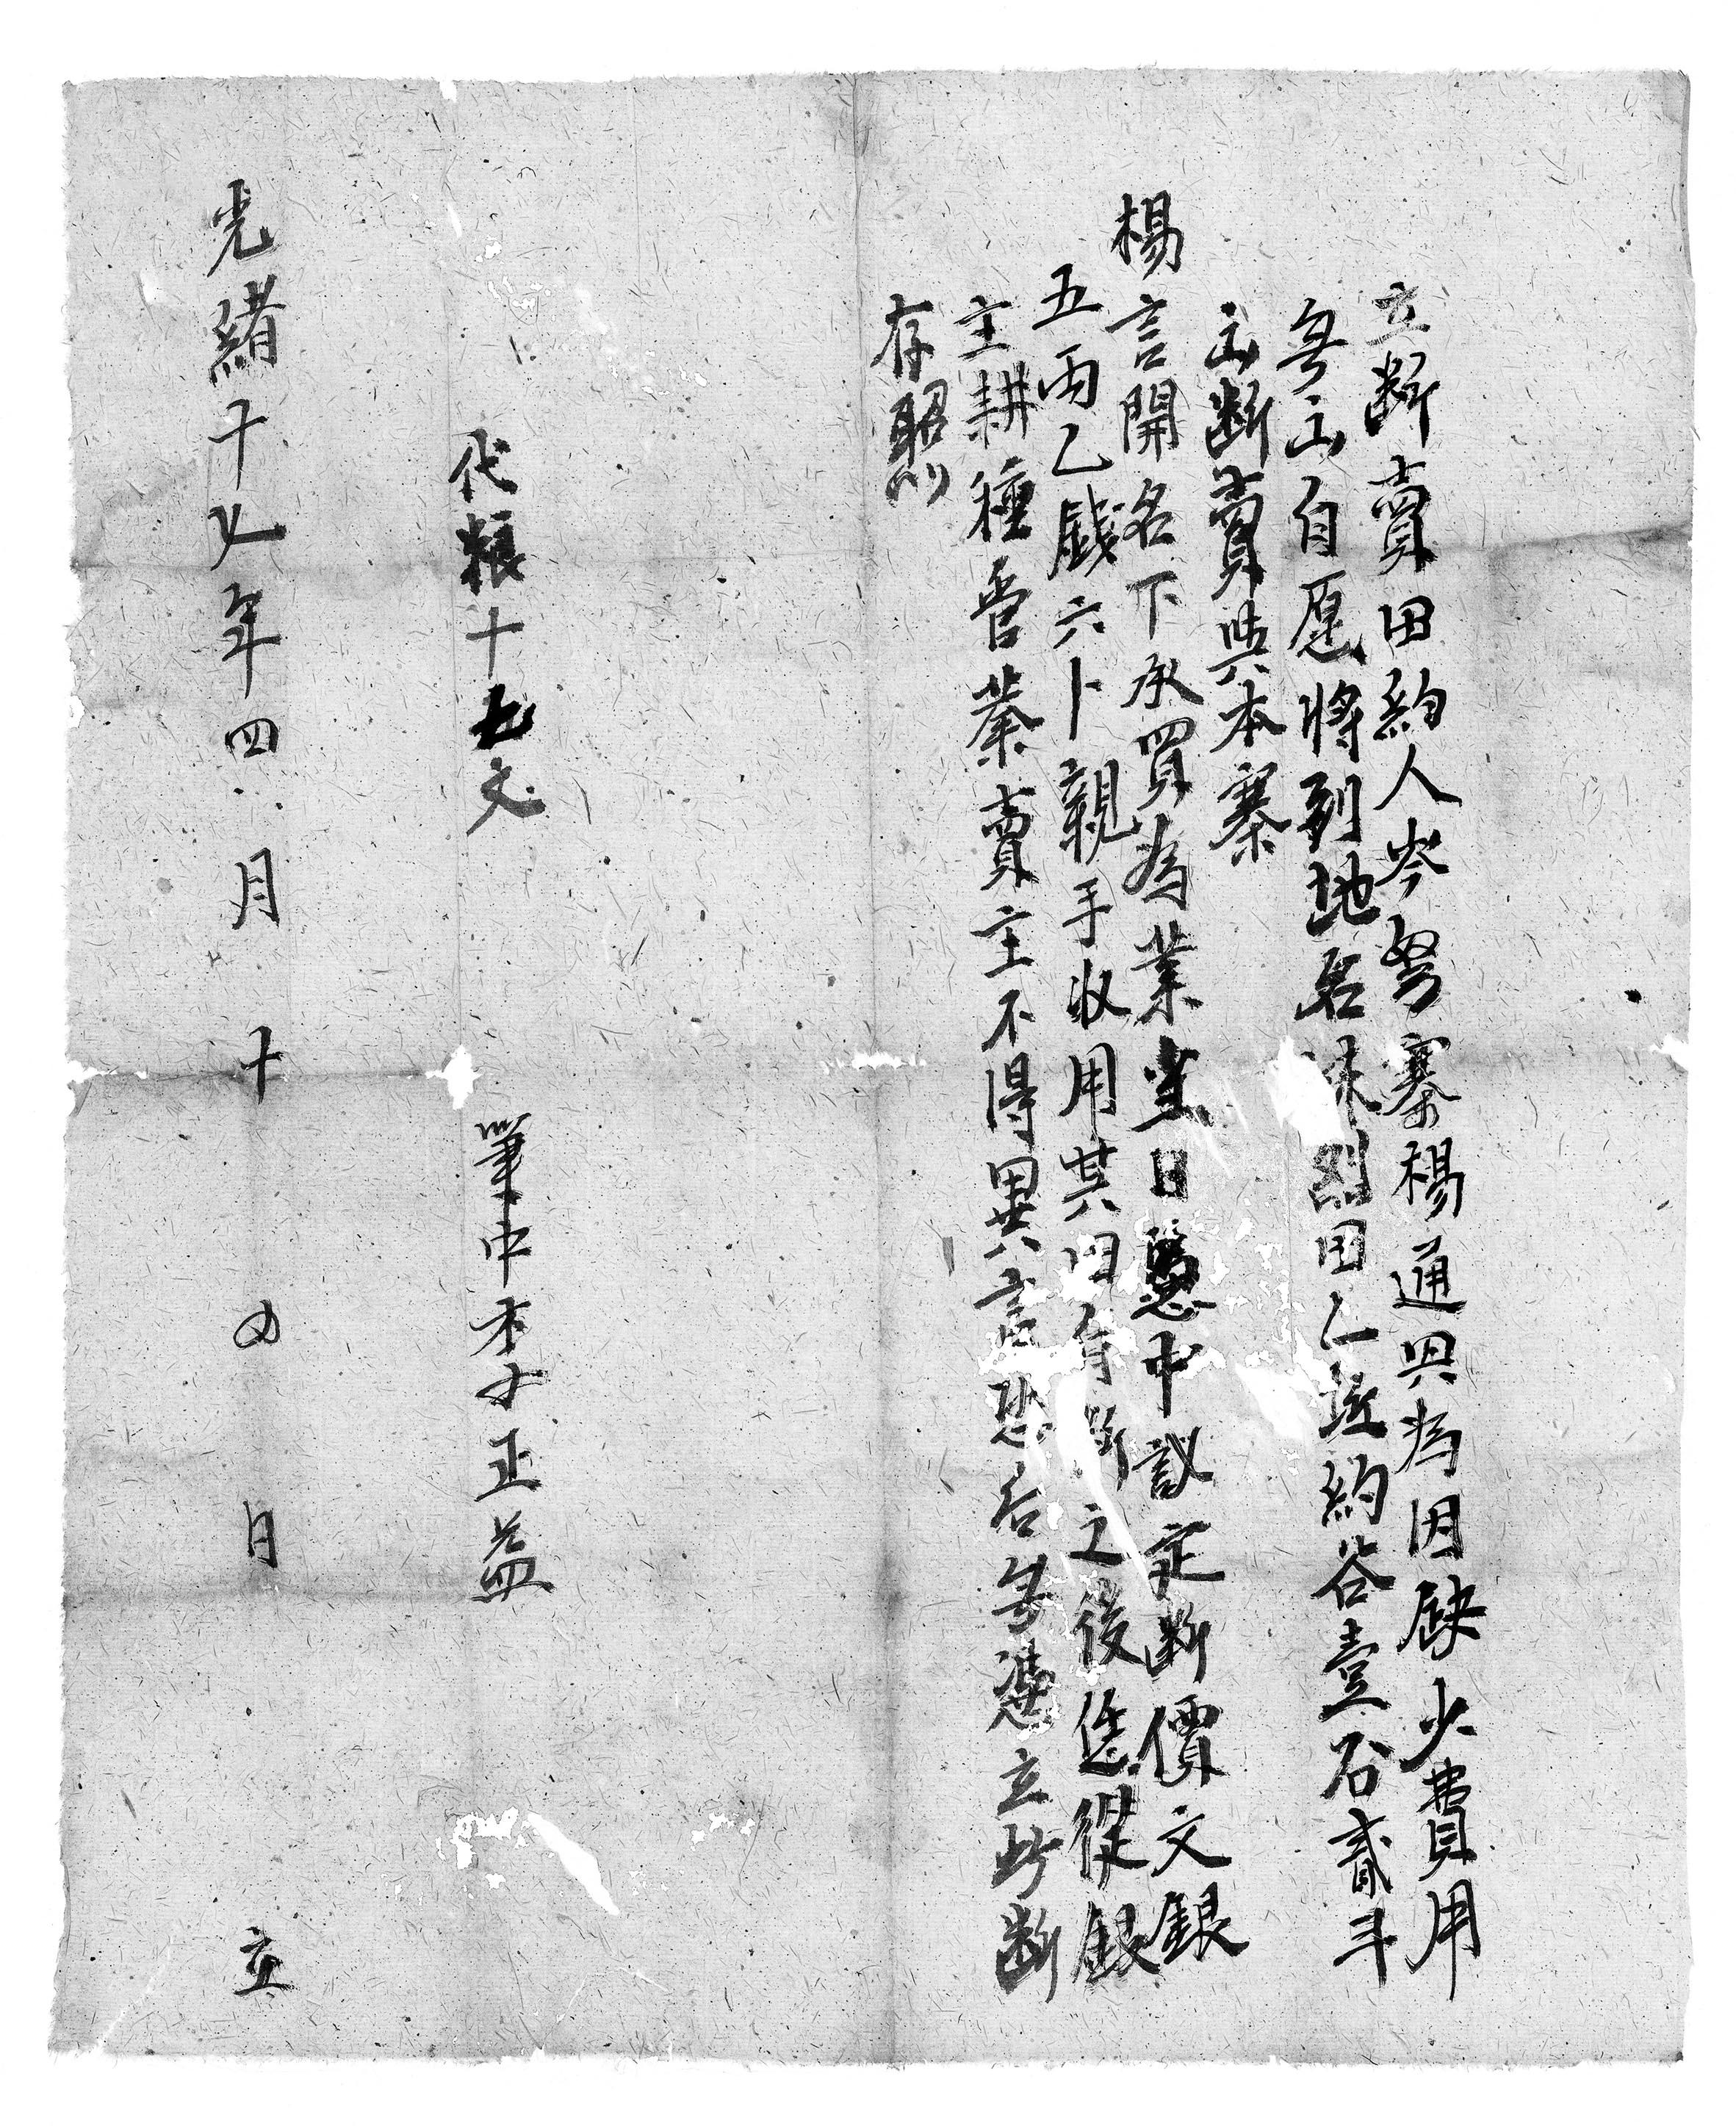 立断賣田約人岑努寨楊通興為因缺少費用
無出自愿將到地名 田乙坵約谷壹石貳斗
出断賣與本寨
楊言開名下承買為業當日憑中議定断價文銀
五両乙錢六卜親手收用其田自断之後恁從銀
主耕種管業賣主不得異言恐后無憑立此断
存照
代粮十七文
筆中 正益
光緒十 年四月十 日 立